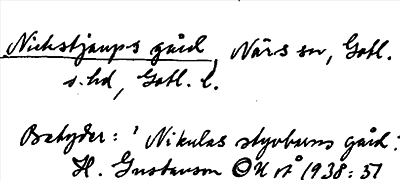 Nickstjaups gård, Närs sn, Gotl.
s. hd, Gotl. l.
Betyder: 'Nikulas styvbarns gård:
H. Gustavson OH på 1938: 51